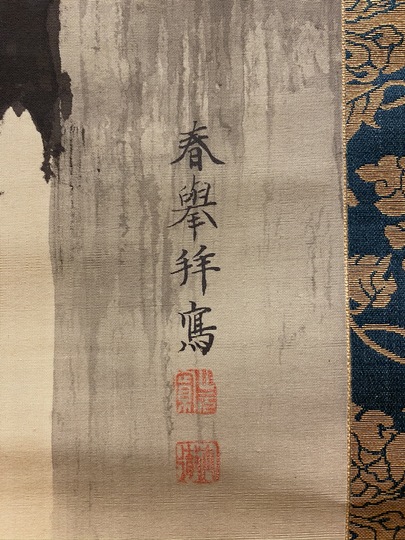 春擧拜寫